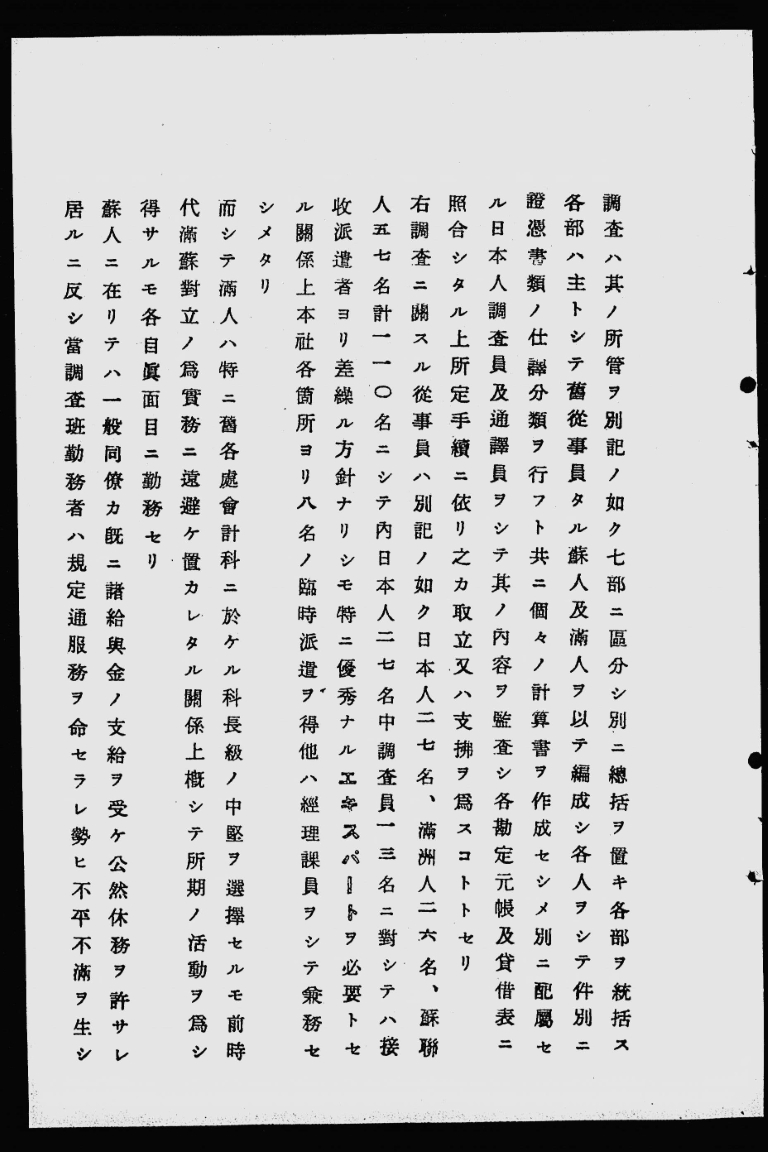 調査ハ其ノ所管ヲ別記ノ如ク七部ニ區分シ別ニ總括ヲ置キ各部ヲ統括ス
各部ハ主トシテ舊從事員タル蘇人及滿人ヲ以テ編成シ各人ヲシテ件別ニ
證憑書類ノ仕譯分類ヲ行フト共ニ個々ノ計算書ヲ作成セシメ別ニ配屬セ
ル日本人調査員及通譯員ヲシテ其ノ內容ヲ監査シ各勘定元帳及貸借表ニ
照合シタル上所定手續ニ依リ之カ取立又ハ支拂ヲ爲スコトトセリ
右調査ニ關スル從事員ハ別記ノ如ク日本人二七名、滿洲人二六名、蘇聯
人五七名計一一〇名ニシテ內日本人二七名中調査員一三名ニ對シテハ接
收派遣者ヨリ差繰ル方針ナリシモ特ニ優秀ナルエキスパートヲ必要トセ
ル關係上本社各箇所ヨリ八名ノ臨時派遣ヲ得他ハ經理課員ヲシテ兼務セ
シメタリ
而シテ滿人ハ特ニ舊各處會計科ニ於ケル科長級ノ中堅ヲ選擇セルモ前時
代滿蘇對立ノ爲實務ニ遠避ケ置カレタル關係上槪シテ所期ノ活動ヲ爲シ
得サルモ各自眞面目ニ勤務セリ
蘇人ニ在リテハ一般同僚カ旣ニ諸給與金ノ支給ヲ受ケ公然休務ヲ許サレ
居ルニ反シ當調査班勤務者ハ規定通服務ヲ命セラレ勢ヒ不平不滿ヲ生シ